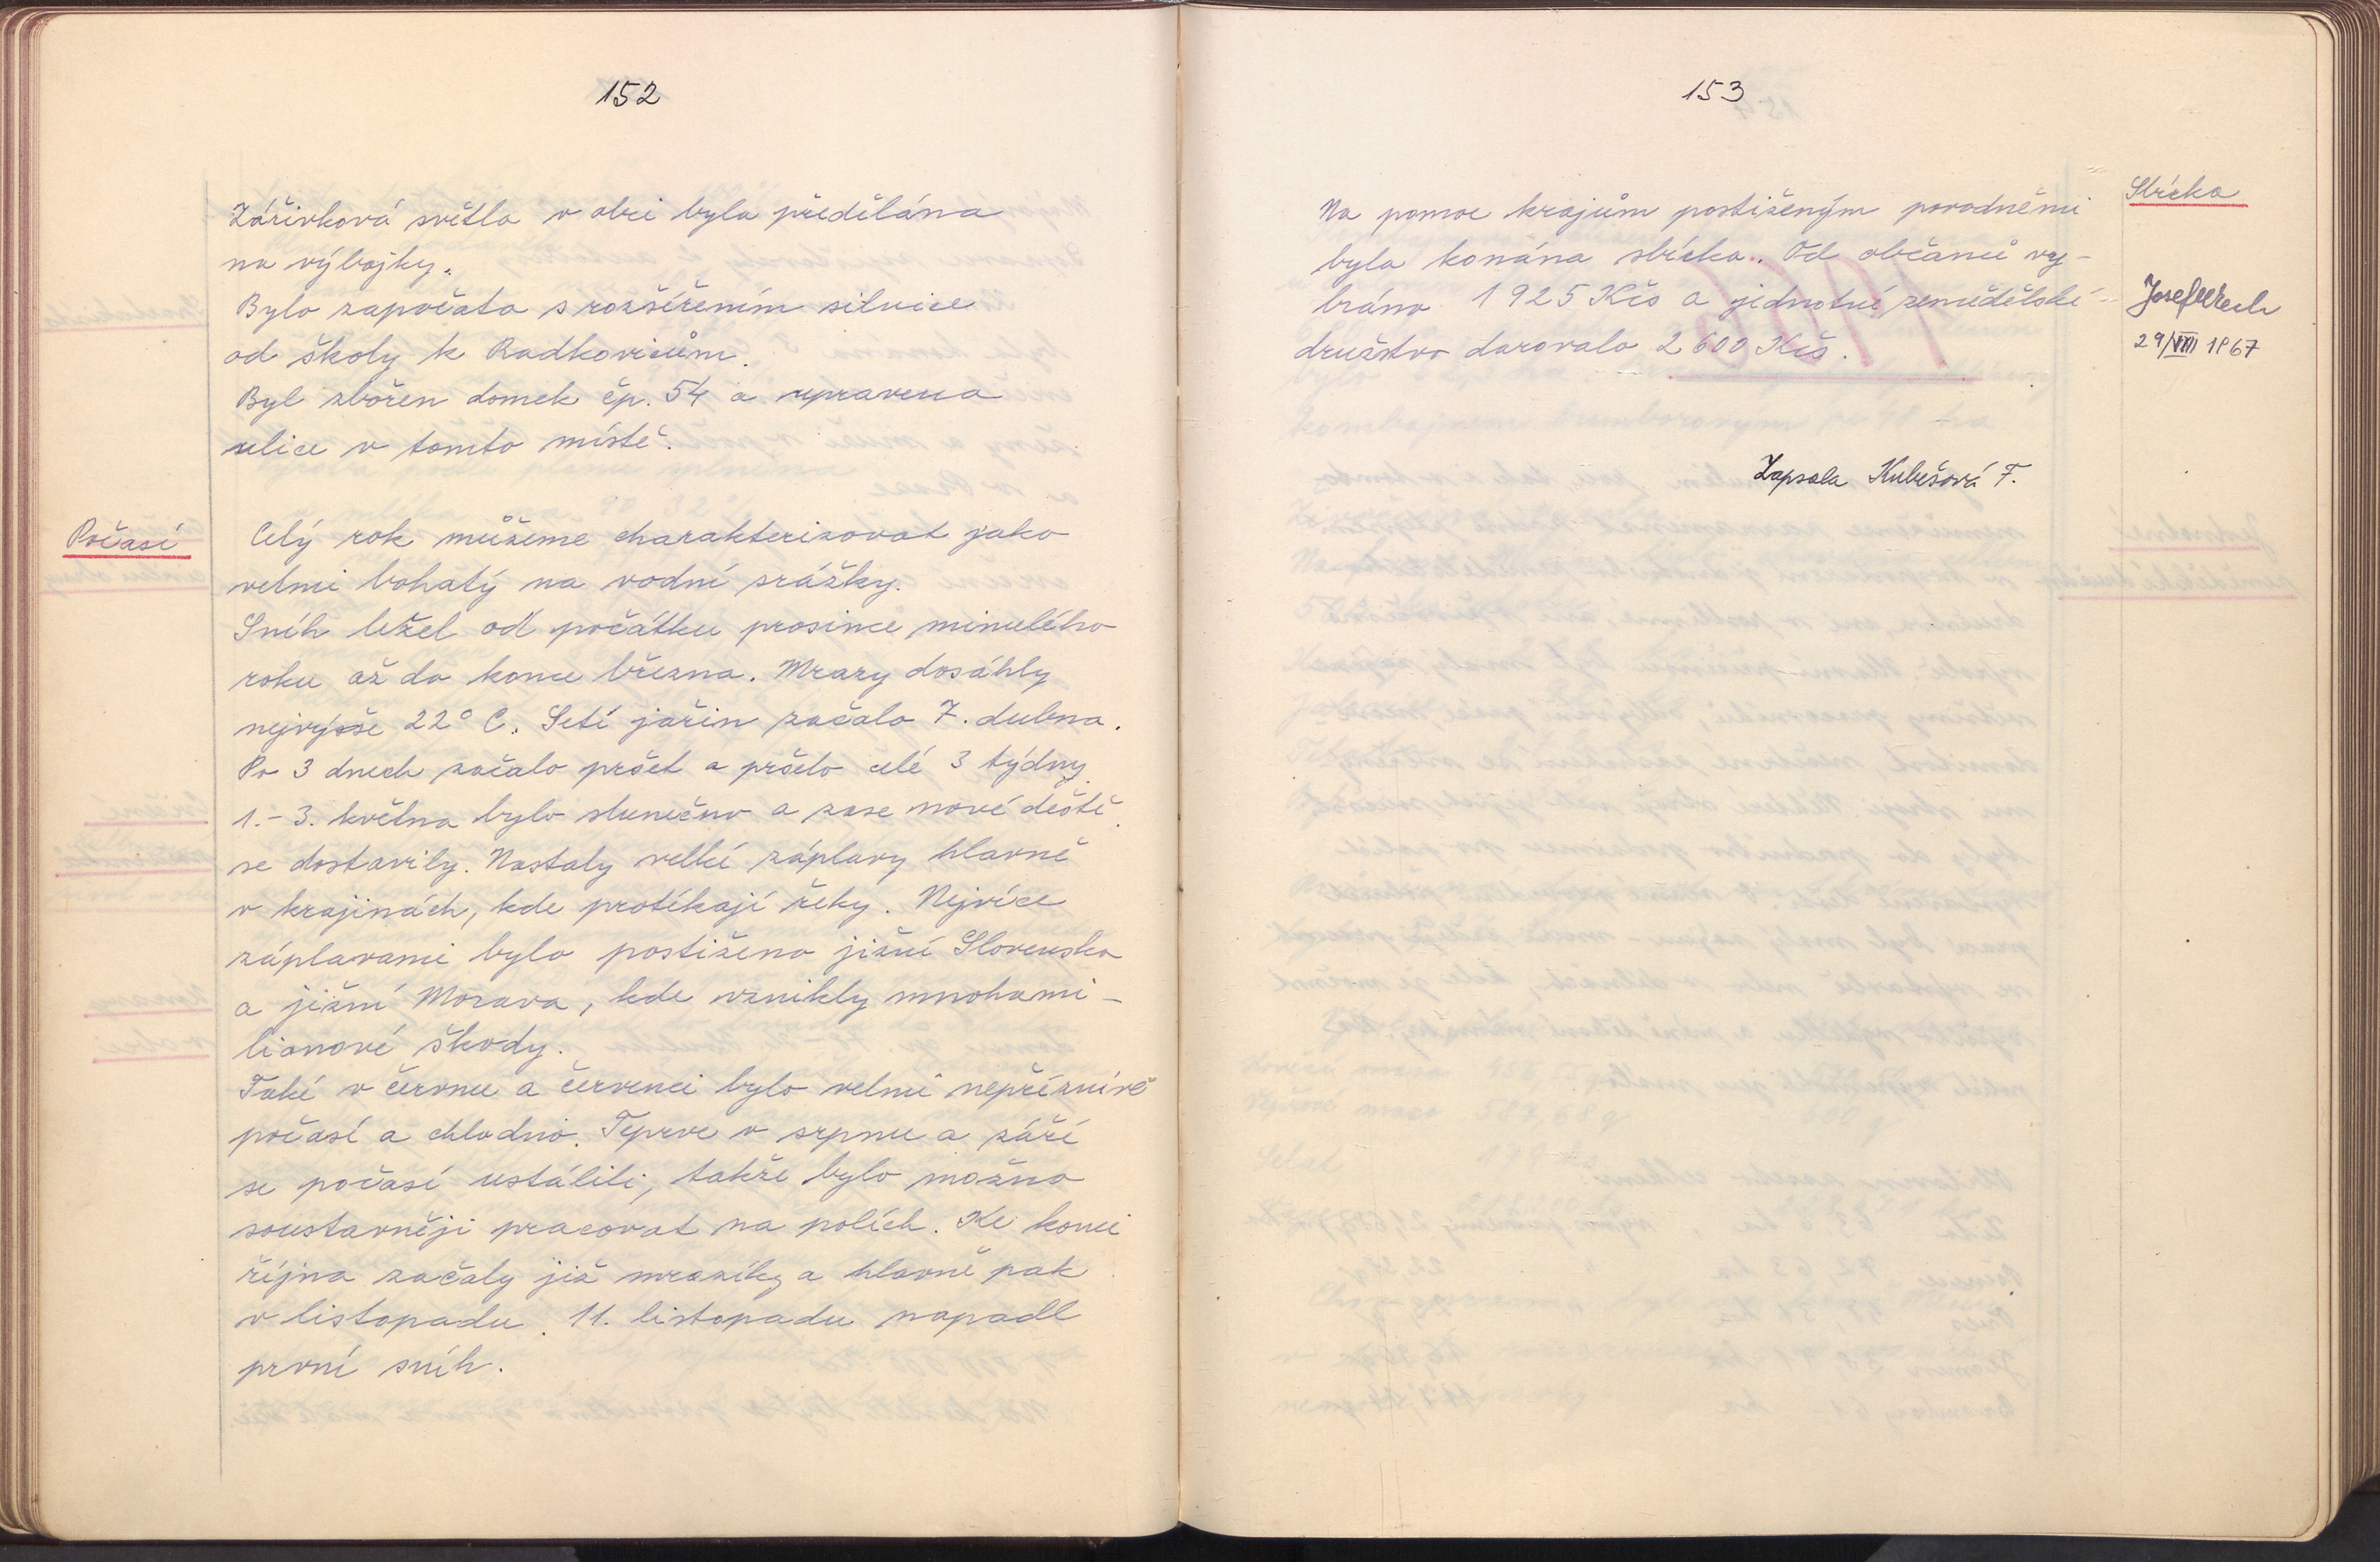 152
Zářivková světla v obci byla předělána
na výbojky.
Bylo započato s rozšířením silnice
od školy k Radkovicům.
Byl zbořen domek čp. 54 a upravena
ulice v tomto místě.
Počasí
Celý rok můžeme charakterizovat jako
velmi bohatý na vodní srážky.
Sníh ležel od počátku prosince minulého
roku až do konce března. Mrazy dosáhly
nejvýše 22° C. Setí jařin začalo 7. dubna.
Po 3 dnech začalo pršet a pršelo celé 3 týdny.
1.-3. května bylo slunečno a zase nové deště
se dostavily. Nastaly velké záplavy hlavně
v krajinách, kde protékají řeky. Nejvíce
záplavami bylo postiženo jižní Slovensko
a jižní Morava, kde vznikly mnohami-
lionové škody.
Také v červnu a červenci bylo velmi nepříznivé
počasí a chladno. Teprve v srpnu a září
se počasí ustálili, takže bylo možno
soustavněji pracovat na polích. Ke konci
října začaly již mrazíky a hlavně pak
v listopadu. 11. listopadu napadl
první sníh.
153
Sbírka
Na pomoc krajům postiženým povodněmi
byla konána sbírka. Od občanů vy-
bráno 1925 Kčs a jednotné zemědělské
družstvo darovalo 2600 Kčs.
Josef
29/VIII 1967
Zapsala Kubešová F.